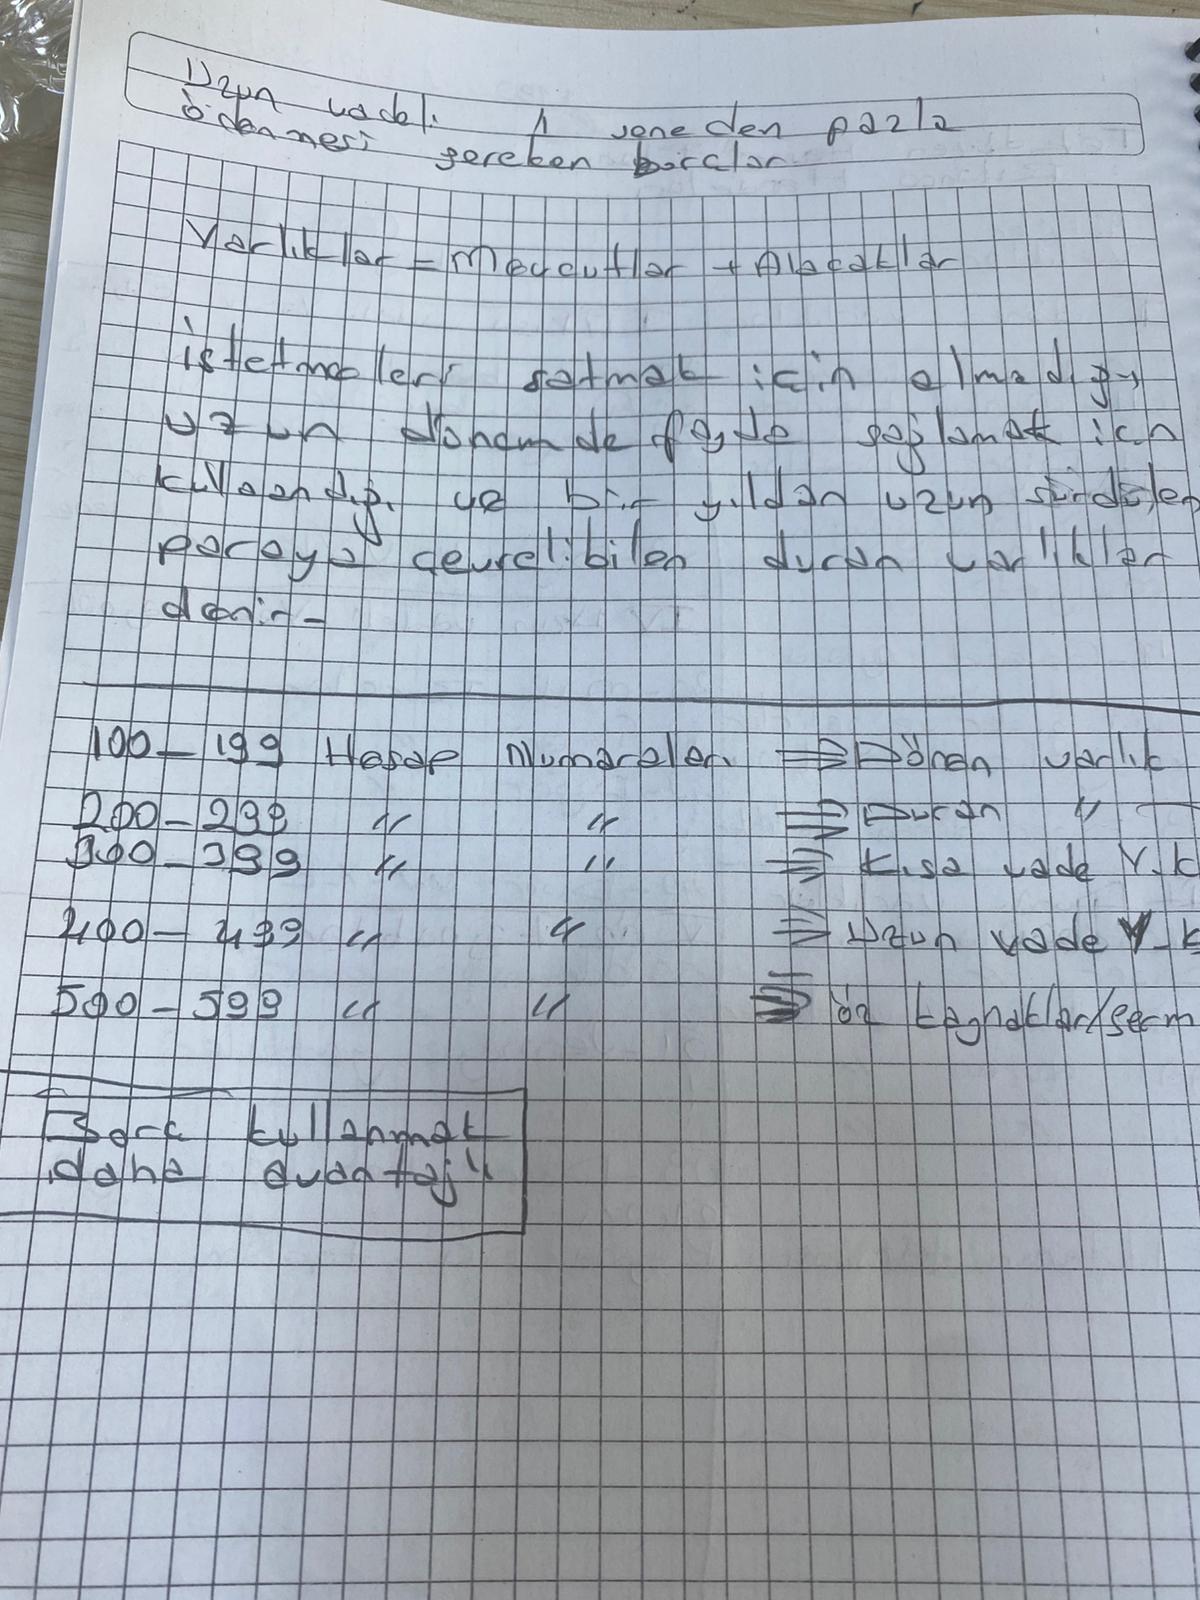 Uzun vadeli 1 seneden fazla
ödenmesi gereken borçlar
Varlıklar = Mevcutlar + Alacaklar
işletmeleri satmak için almadığı
uzun dönemde fayda sağlamak için
kullandığı ve bir yıldan uzun sürede
paraya çevrelibilen duran varlıklar
denir-
100-199 Hesap Numaraları ⇒ Dönen varlık
200-299 " " ⇒ Duran "
300-399 " " ⇒ Kısa vade Y.K
400-499 " " ⇒ Uzun vade Y.K
500-599 " " ⇒ öz kaynaklar/serm
Borç kullanmak
daha avantajlı